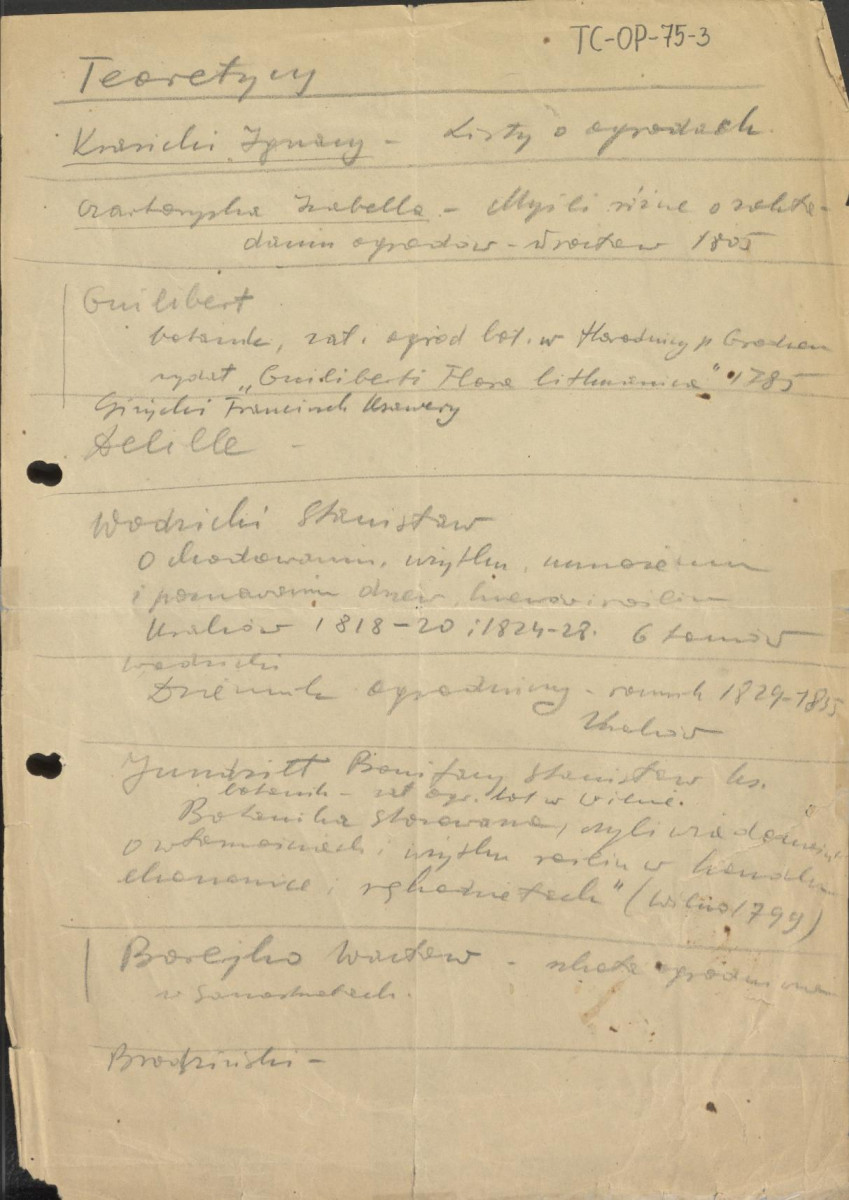 TC-OP-75-3
Teoretycy
Krasicki Ignacy - Listy o ogrodach.
Czartoryska Izabella - Myśli różne o zakła-
daniu ogrodów - Wrocław 1805
Guilibert
botanik, zał. ogród bot. w Horodnicy p. Grodnem
wydał „Guiliberti Flora lithuanica" 1785
Giżycki Franciszek Ksawery
Delille -
Wodzicki Stanisław
O chodowaniu, użytku, mnożeniu
i poznawaniu drzew, krzewów i roślin
Kraków 1818-20 i 1824-28. 6 tomów
Wodzicki
Dziennik ogrodniczy - rocznik 1829-1835
Kraków
Jundziłł Bonifacy Stanisław ks.
botanik - zał. ogr. bot. w Wilnie.
Botanika stosowana, czyli wiadomość
o własnościach i użytku roślin w handlu
ekonomice i rękodziełach" (Wilno 1799)
Borejko Wacław - szkoła ogrodnicza
w Samostrzałach.
Brodziński -